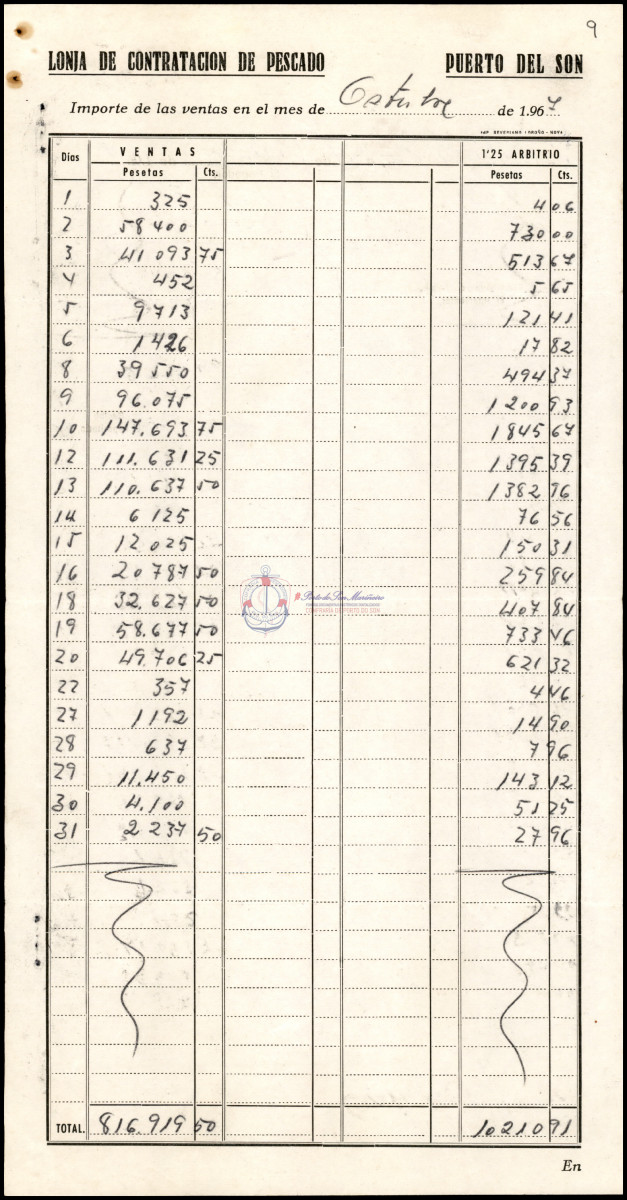 9
LONJA DE CONTRATACION DE PESCADO PUERTO DEL SON
Importe de las ventas en el mes de Octubre de 1.967
Días VENTAS 1'25 ARBITRIO
Pesetas Cts. Pesetas Cts.
1 325 4 06
2 58400 730 00
3 41.093 75 513 67
4 452 5 65
5 9713 121 41
6 1426 17 82
8 39550 494 37
9 96.075 1200 93
10 147.693 75 1845 67
12 111.631 25 1395 39
13 110.637 50 1382 96
14 6125 76 56
15 12025 150 31
16 20787 50 259 84
18 32.627 50 407 84
19 58.677 50 733 46
20 49.706 25 621 32
22 357 4 46
27 1192 14 90
28 637 7 96
29 11.450 143 12
30 4.100 51 25
31 2237 50 27 96
TOTAL. 816.919 50 10210 91
En
Porto do Son Mariñeiro